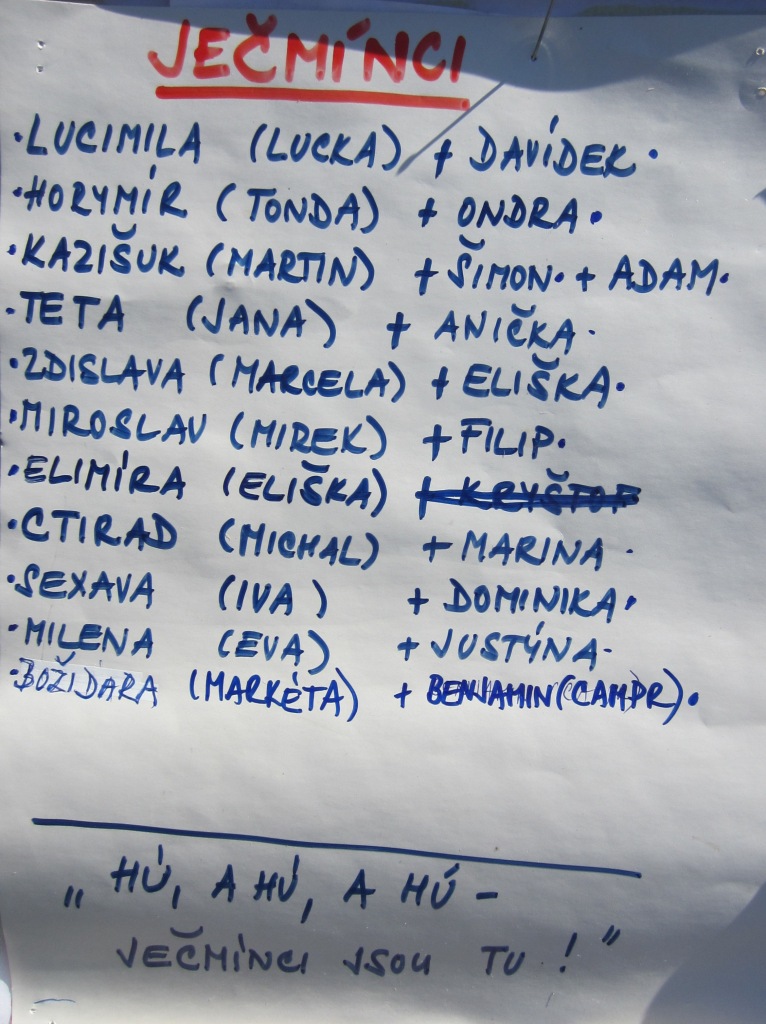 JEČMÍNCI
• LUCIMILA (LUCKA) + DAVÍDEK •
• HORYMÍR (TONDA) + ONDRA •
• KAZIŠUK (MARTIN) + ŠIMON • + ADAM •
• TETA (JANA) + ANIČKA •
• ZDISLAVA (MARCELA) + ELIŠKA •
• MIROSLAV (MIREK) + FILIP •
• ELIMÍRA (ELIŠKA) + KRYŠTOF
• CTIRAD (MICHAL) + MARINA •
• SEXAVA (IVA) + DOMINIKA •
• MILENA (EVA) + JUSTÝNA •
• BOŽIDARA (MARKÉTA) + BENJAMIN (CAMPR) •
„ HÚ, A HÚ, A HÚ -
JEČMÍNCI JSOU TU ! "